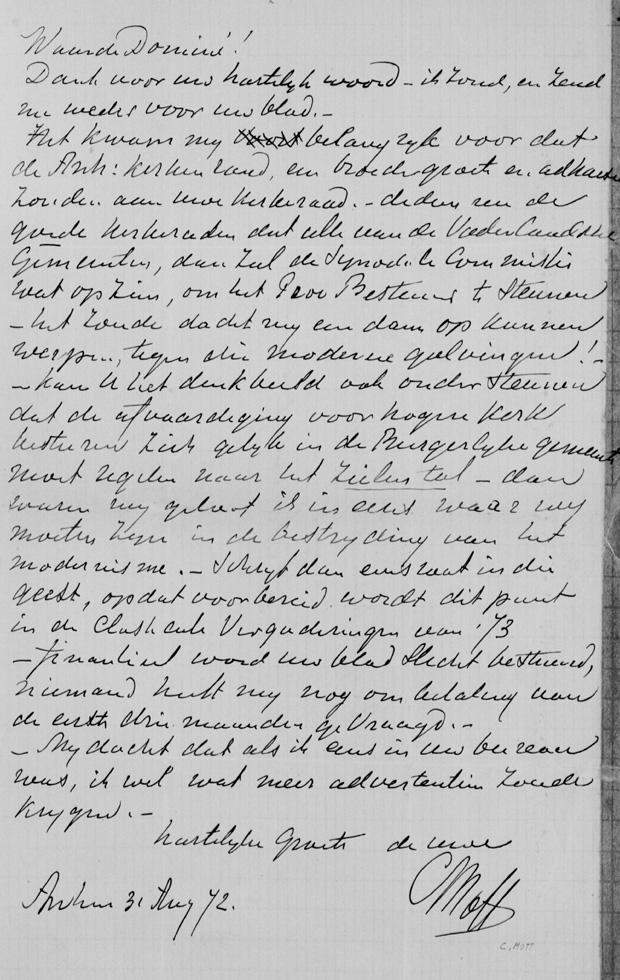 Waarde Dominé!
Dank voor uw hartelijk woord – ik zond, en zend
nu weder voor uw blad. –
Het kwam my belangryk voor dat
de Arnh: kerkenraad, een broedergroet en adhaesie
zouden aan uwe kerkeraad. – deden nu de
goede kerkeraden dat alle van de Vaderlandsche
Gemeenten, dan zal de Synodale Commissie
wat opzien, om het Prov Bestuur te steunen
– het zoude dacht my een dam op kunnen
werpen, tegen die moderne golvingen! –
– kan U het denkbeeld ook ondersteunen
dat de afvaardiging voor hogere Kerk
besturen zich gelyk in de Burgerlyke gemeente
moet regelen naar het zielental – dan
waren wy geloof ik in eens waar wy
moeten zyn in de bestryding van het
modernisme. – Schryf dan eens wat in die
geest, opdat voorbereid wordt dit punt
in de Classicale Vergaderingen van '73
– finantieel word uw blad slecht bestuurd,
niemand heeft my nog om betaling van
de eerste drie maanden gevraagd. –
– My dacht dat als ik eens in uw bureau
was, ik wel wat meer advertentien zoude
krygen. –
hartelyke groete de uwe
CMott
Arnhem 31 Aug 72.
C. MOTT